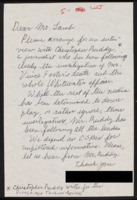 Dear Mr. Lamb
Please arrange for an inter-
view with Christopher Ruddy,
a journalist who has been following
closely the investigation of Mr.
Vince Foster's death and the
whole Whitewater affair.
While the rest of the media
has been determined to down
play, or rather ignore, these
investigations Mr. Ruddy has
been following all the leads.
We depend on C-Span for
unfiltered information. Please,
let us hear from Mr. Ruddy.
Thank you
* Christopher Ruddy writes for the
Pittsburgh Tribune-Review